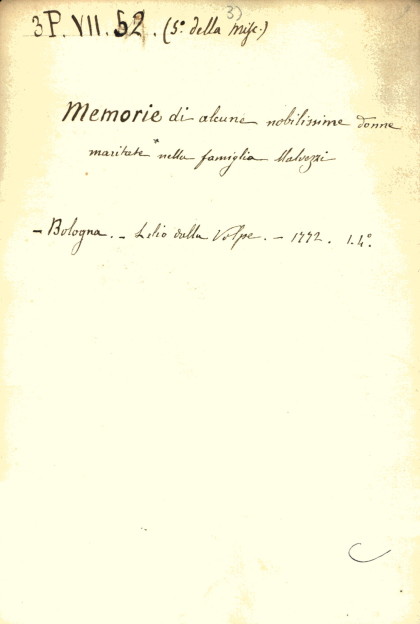 3)
3P. VII. 52. (5º della Misc.)
Memorie di alcune nobilissime donne
maritate nella famiglia Malvezzi
- Bologna. - Lelio dalla Volpe. - 1772. 1.4º.